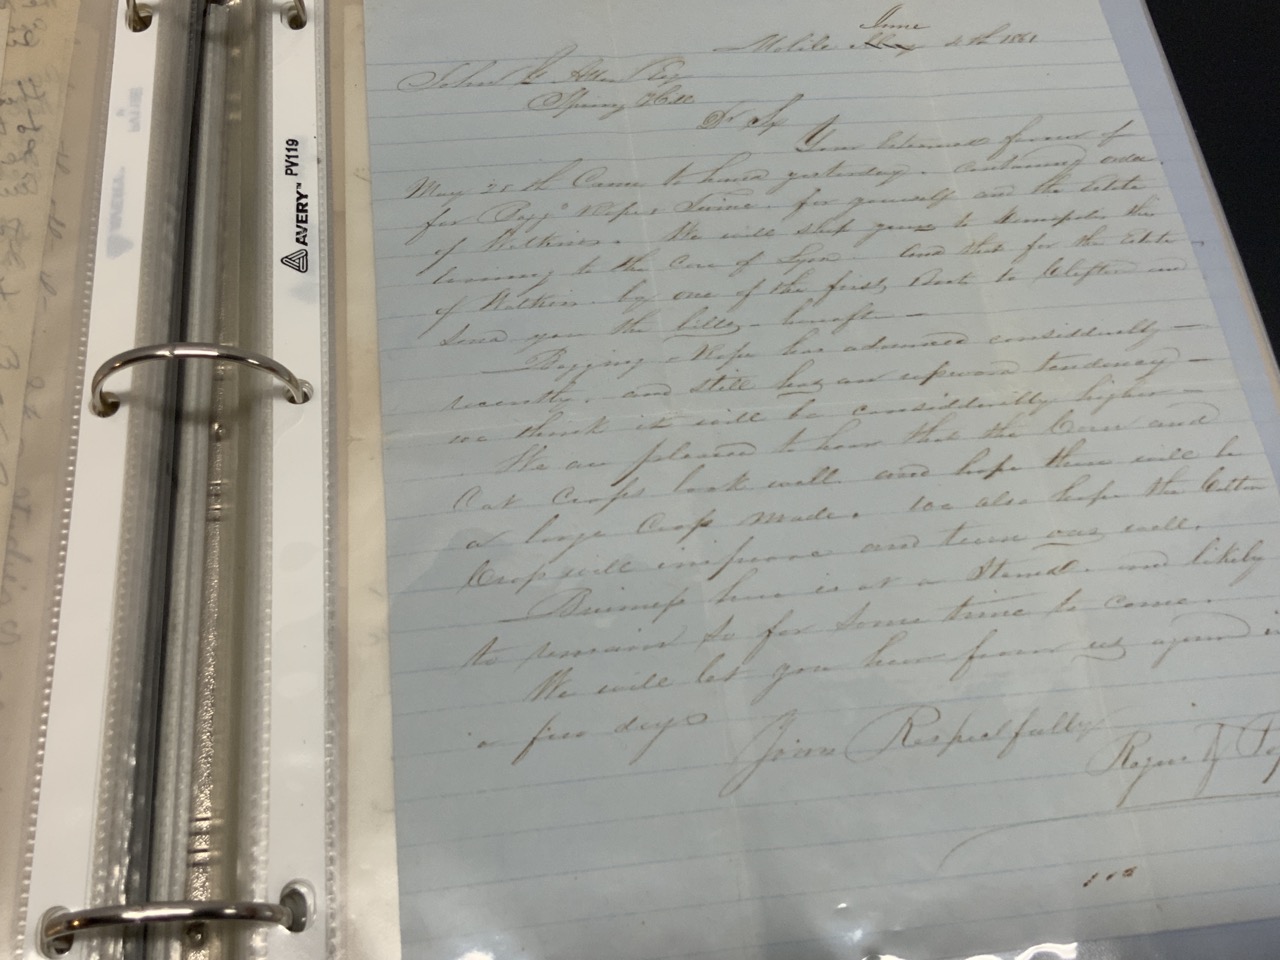 AVERY™ PV119
June
Mobile May 4th 1861
John Esq
Spring Hill
Dr Sir
Your esteemed favour of
May 28th Came to hand yesterday. containing order
for Bagg° Rope & Twine. for yourself and the Estate
of Watkins. We will ship yours to Demopolis this
evening to the Care of Lyon. and that for the Estate
of Watkins. by one of the first Boats to and
send you the bills -
Bagging & Rope has advanced considerably —
recently. and still has an upward tendency —
we think it will be considerably higher —
We are pleased to hear that the Corn and
Oat Crops look well. and hope there will be
a large Crop made. we also hope the Cotton
Crop will improve and turn out well.
Business here is at a Stand. and likely
to remain so for some time to come.
We will let you hear from us again in
a few days
Yours Respectfully